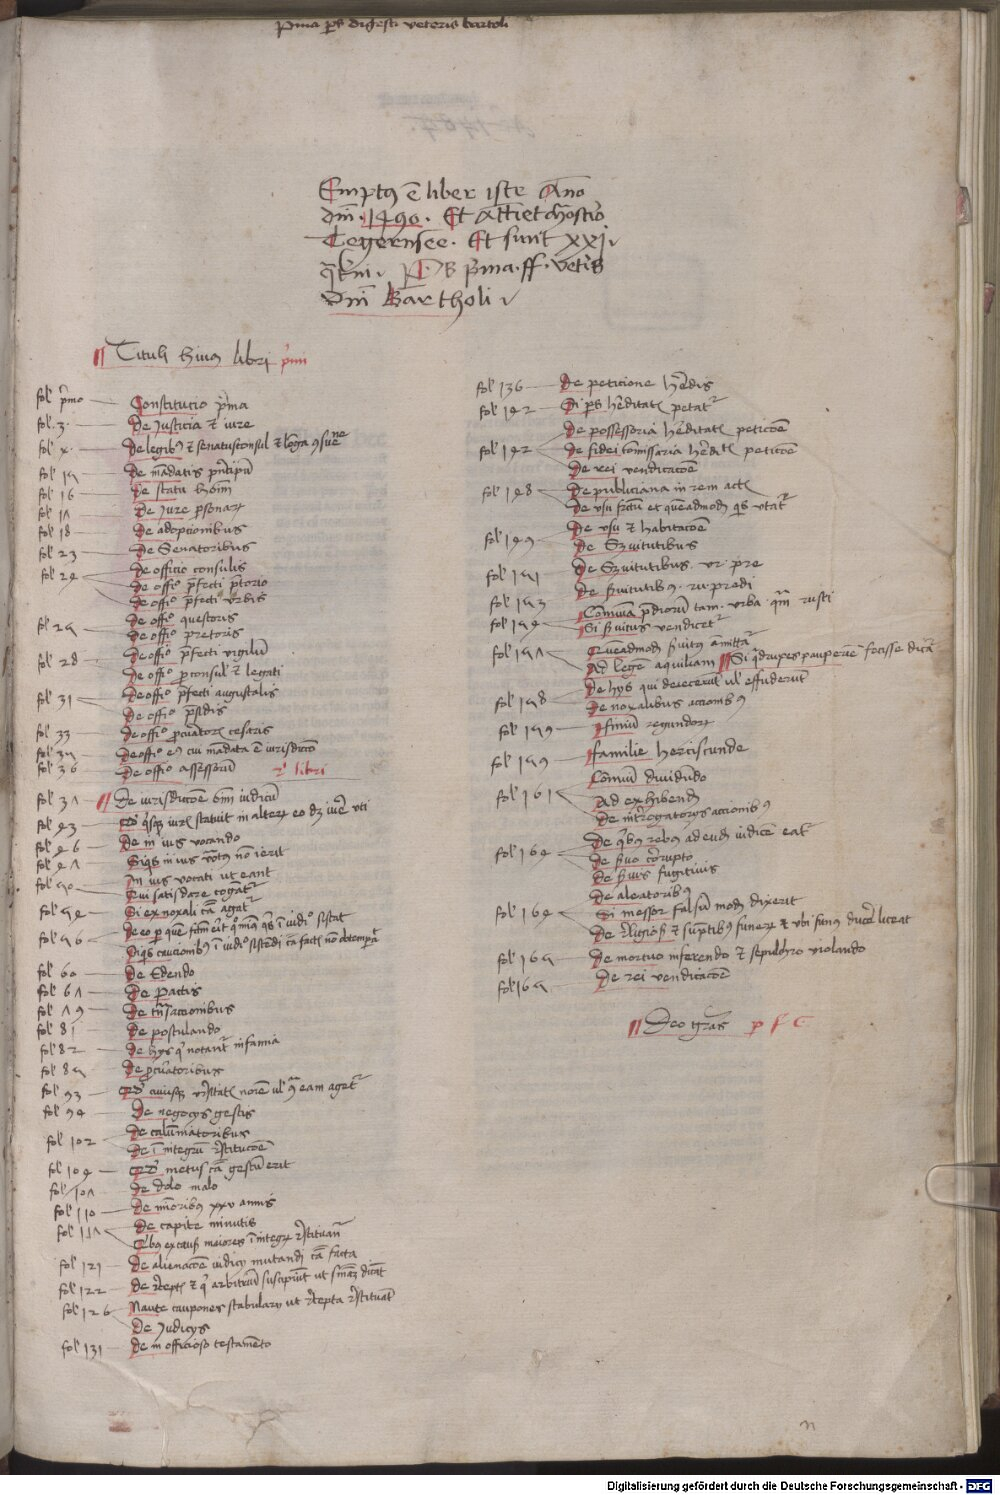 Prima ps digesti veteris bartoli
Emptus e liber iste Anno
dni · 1490 · Et attinet monsterio
Tegernsee · Et sunt xxj
qterni · P · PS prima · ff · veteris
dni Bartholi
Tituli huius libri primi
fol primo Constitutio prima
fol 3 · De Justicia et iure
fol x · De legibus et senatusconsul et longa
fol 15 De mandatis principum
fol 16 De statu hominum
fol 17 De Jure personarum
fol 18 De adopcionibus
fol 23 De Senatoribus
fol 24 De officio consulis
De offio prefecti pretorio
De offio prefecti vrbis
fol 25 De offio questoris
De offio pretoris
fol 28 De offio prefecti vigilum
De offio proconsul et legati
fol 31 De offio prefecti augustalis
De offio presidis
fol 33 De offio procuratorum cesaris
fol 35 De offio eius cui mandata e iurisdiccio
fol 36 De offio assessorum
2i libri
fol 37 De iurisdiccone omnium iudicum
fol 43 Quod quisque iuris statuit in alterum eo vti
fol 46 De in ius vocando
fol 47 Siquis in ius vocatus non ierit
fol 50 In ius vocati ut eant
Qui satisdare cogantur
fol 54 Si ex noxali ca agatur
fol 56 De eo per quem factum erit quominus quis in iudicio sistat
fol 60 De Edendo
fol 61 De pactis
fol 79 De transaccionibus
fol 81 De postulando
fol 82 De hys qui notantur infamia
fol 85 De procuratoribus
fol 93
fol 94 De negocys gestis
fol 102 De calumniatoribus
De in integrum restitucione
fol 104 Quod metus ca gestum erit
fol 107 De dolo malo
fol 110 De minoribus xxv annis
fol 117 De capite minutis
fol 121 De alienacone iudicy mutandi ca facta
fol 122
fol 126 Naute caupones stabulary ut recepta restituant
De Judicys
fol 131 De in officioso testamento
fol 136 De peticione hereditatis
fol 142 Si ps hereditatis petatur
De possessoria hereditatis peticone
fol 142 De fidei comissaria hereditatis peticone
De rei vendicacone
fol 148 De publiciana in rem actione
De vsu fructu et quemadmodum quis vtatur
fol 149 De vsu et habitacone
De Servitutibus
fol 151 De Servitutibus · vr · pre
fol 153 De servitutibus · ru · predi
fol 154 Comunia prediorum tam · vrba · quam rusti
Si servitus vendicetur
fol 157 Quemadmodum servitus amittatur
Ad legem aquiliam Si quadrupes pauperiem fecisse dicatur
fol 158 De hys qui deiecerint vel effuderint
De noxalibus accionibus
fol 159 finium regundorum
fol 159 familie herciscunde
Comuni dividundo
fol 161 Ad exhibendum
De interrogatorys accionibus
fol 164 De quibus rebus ad eundem iudicem eatur
De servo corrupto
De servis fugitivis
De aleatoribus
fol 164 Si mensor falsum modum dixerit
De religiosis et sumptibus funerum et vbi funus ducere liceat
fol 165 De mortuo inferendo et sepulchro violando
fol 165 De rei vendicacone
Deo gracias
Digitalisierung gefördert durch die Deutsche Forschungsgemeinschaft - DFG